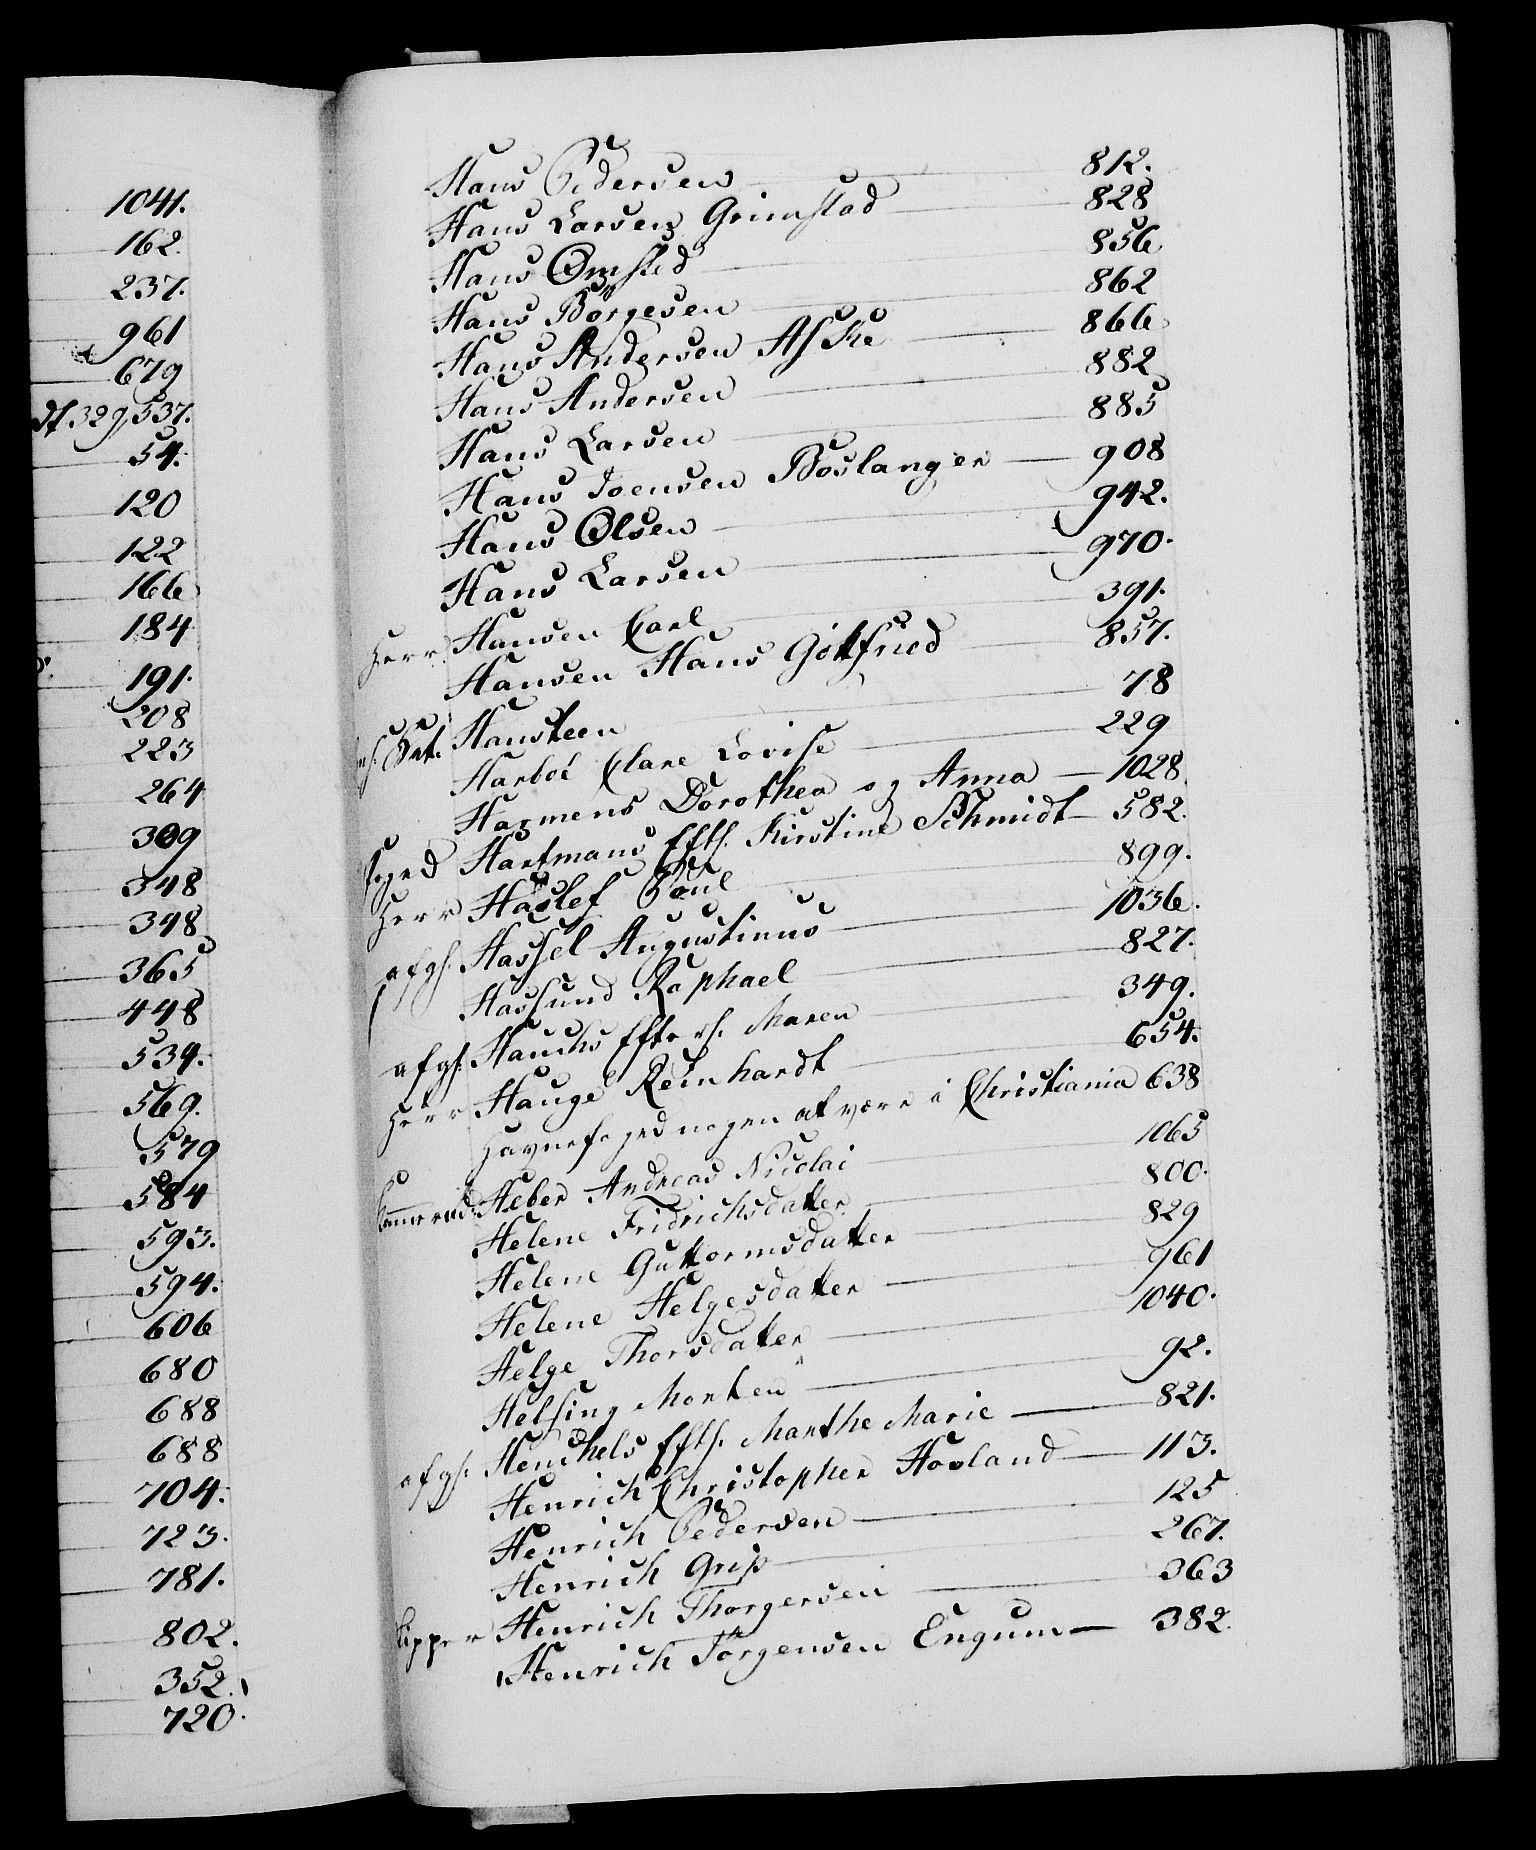 1041.
162.
237.
961
679
df. 329, 537.
54.
120
122
166
184
191.
208
223
264
309
348
398
365
448
539.
569.
579
584
593.
594.
606
680
688
688
704.
723.
781.
802.
352.
720.
Hans Pedersen 812.
Hans Larsen Grimstad 828
Hans Omsted 856
Hans Börgesen 862
Hans Andersen Aske 866
Hans Andersen 882
Hans Larsen 885
Hans Joensen Boslangen 908
Hans Olsen 942.
Hans Larsen 970.
Herr Hansen Carl 391.
Hansen Hans Gotfried 857.
Hansteen 78
Harboe Clare Lovise 229
Harmens Dorothea og Anna 1028
Hartmans Eftl. Kirstine Schmidt 582.
Herr Haslef Poul 899.
afgl. Hassel Augustinus 1036.
Hassund Raphael 827.
afgl. Hauchs Efterl. Maren 349.
Herr Hauge Reinhardt 654.
Havnefoged nogen at være i Christiania 638
Kammerraad Heber Andreas Nicolai 1065
Helene Fridrichsdatter 800.
Helene Guttormsdatter 829
Helene Helgesdatter 961
Helge Thorsdatter 1040.
Helsing Morten 92.
afgl. Henchels Eftl. Marthe Marie 821.
Henrich Christopher Hovland 113.
Henrich Pedersen 125
Henrich Grip 267.
Skipper Henrich Thorgersen 363
Henrich Jörgensen Engum 382.